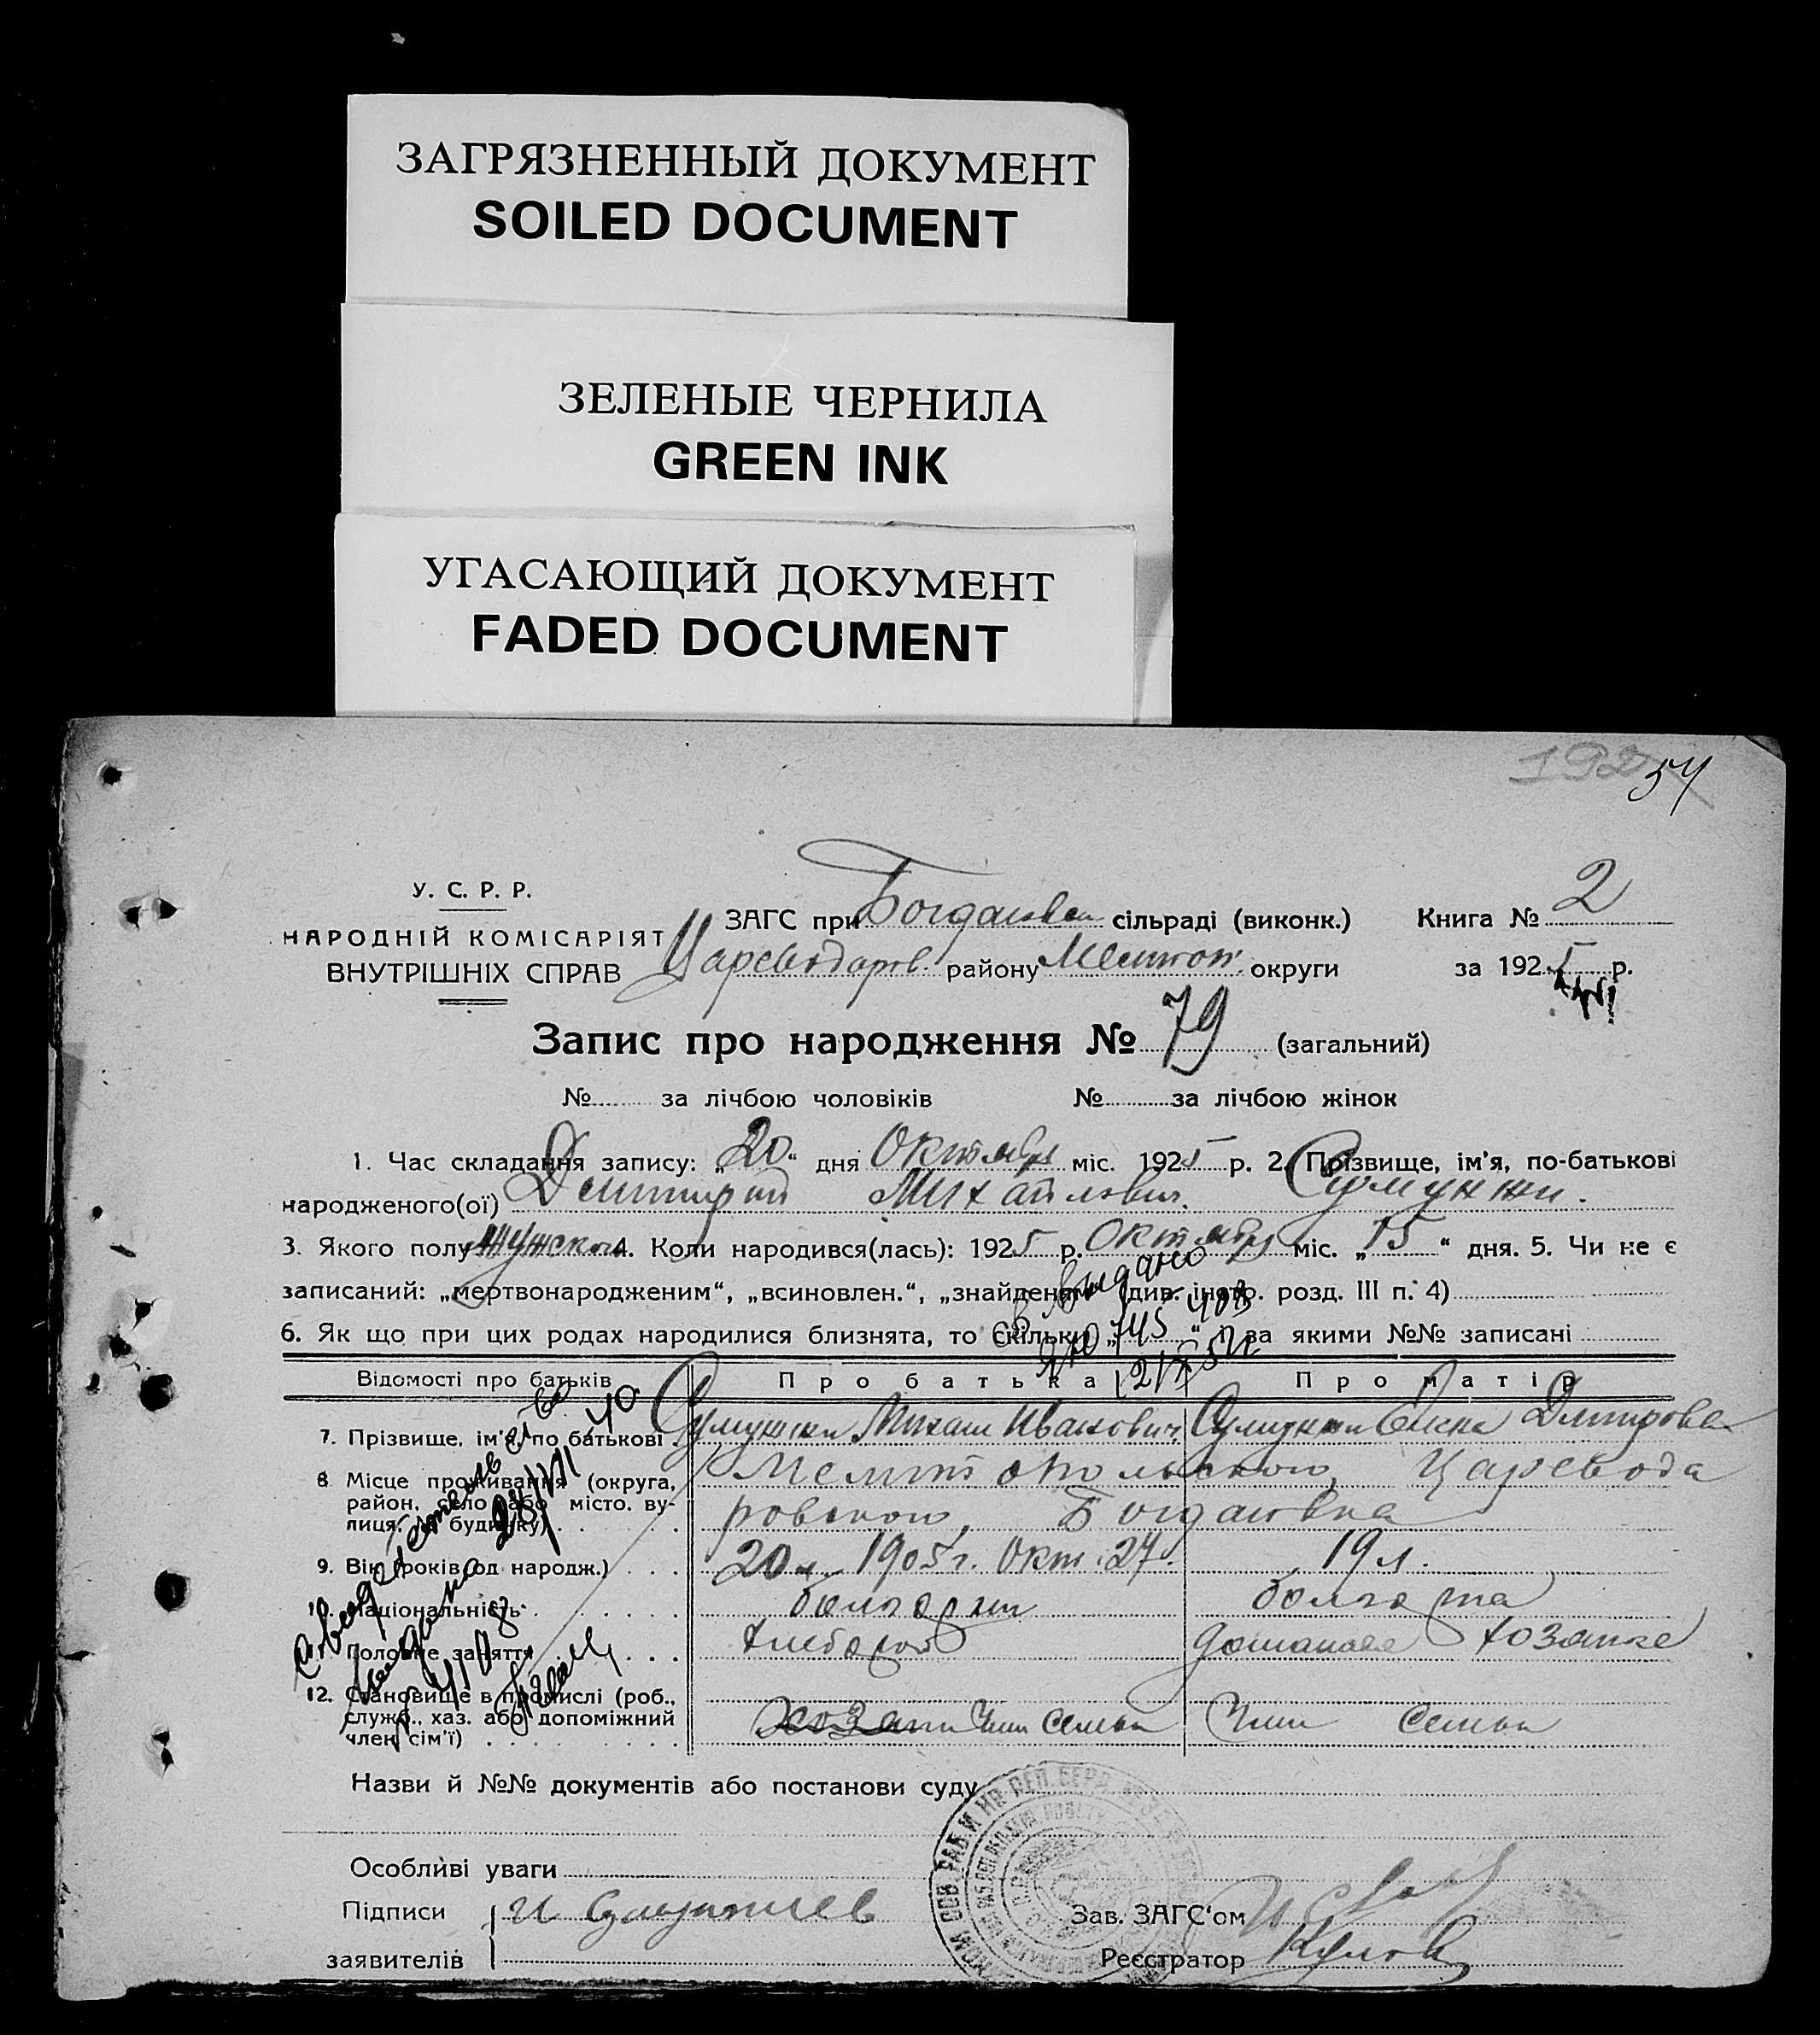 ЗАГРЯЗНЕННЫЙ ДОКУМЕНТ
SOILED DOCUMENT
ЗЕЛЕНЫЕ ЧЕРНИЛА
GREEN INK
УГАСАЮЩИЙ ДОКУМЕНТ
FADED DOCUMENT
192 54
У. С. Р. Р.
НАРОДНІЙ КОМІСАРІЯТ
ВНУТРІШНІХ СПРАВ
ЗАГС при Богдановск сільраді (виконк.) Книга № 2
Цареводаров. району Мелитоп. округи за 1925 р.
Запис про народження № 79 (загальний)
№ за лічбою чоловіків № за лічбою жінок
1. Час складання запису: „20“ дня Октября міс. 1925 р. 2. Прізвище, ім'я, по-батькові
народженого(ої) Дмитрий Михайлович.
3. Якого полу Мужского 4. Коли народився(лась): 1925 р. Октября міс. „15“ дня. 5. Чи не є
записаний: „мертвонародженим“, „всиновлен.“, „знайденим“ (див. інстр. розд. III п. 4)
6. Як що при цих родах народилися близнята, то скільки „ “ і за якими №№ записані
Св. Выдано
745
Відомості про батьків Про батька Про матір
7. Прізвище, ім'я, по батькові Михаил Иванович Елена Дмитрова
8. Місце проживання (округа, район, село або місто, вулиця, № будинку) Мелитопольского, Царевода
ровского, Богдановка
9. Вік (років од народж.) 20 л. 1905 г. Окт. 27. 19 л.
10. Національність болгарин болгарка
11. Головне заняття хлебороб домашняя хозяйка
12. Становище в промислі (роб., служб., хаз. або допоміжний член сім'ї) Член семьи Член семьи
Свидетельство
выдано 28/VII 40
Назви й №№ документів або постанови суду
Особливі уваги
Підписи
заявителів
Зав. ЗАГС'ом
Реєстратор